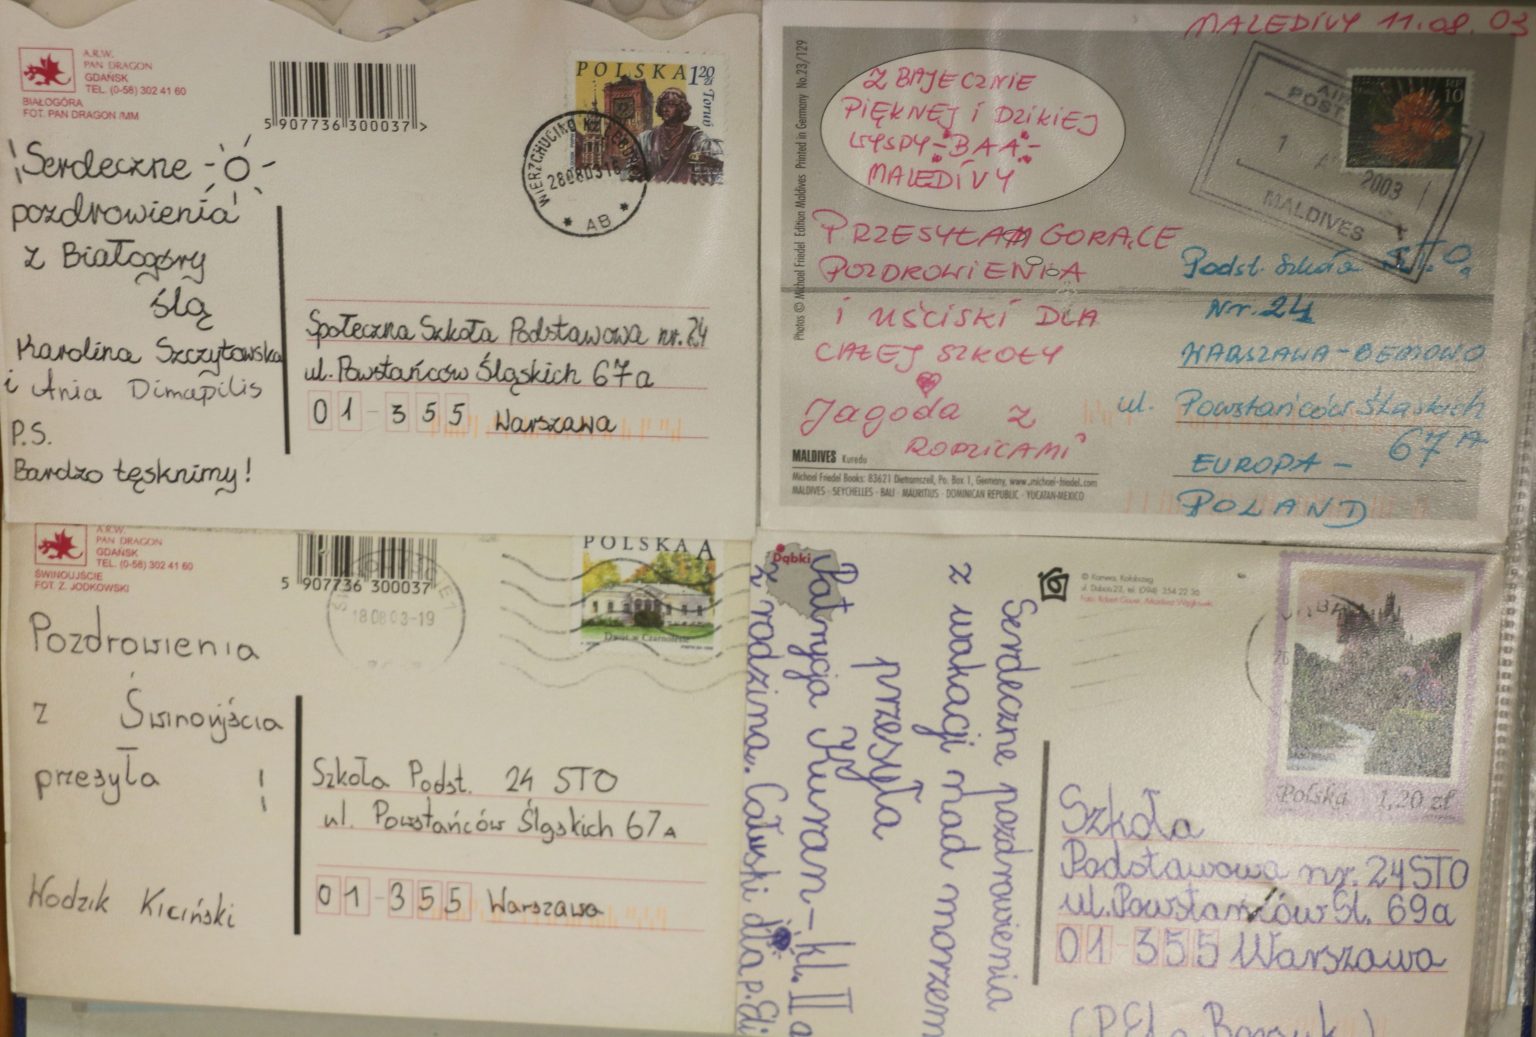 A.R.W.
PAN DRAGON
GDAŃSK
TEL. (0-58) 302 41 60
BIAŁOGÓRA
FOT. PAN DRAGON /MM
5 907736 300037 >
POLSKA 1 20 zł
Toruń
280803 16
AB
Serdeczne
pozdrowienia
z Białogóry
ślą
Karolina Szczytowska
i Ania Dimapilis
P.S.
Bardzo tęsknimy!
Społeczna Szkoła Podstawowa nr. 24
ul. Powstańców Śląskich 67a
01-355 Warszawa
MALEDIVY 11.08.03
Z BAJECZNIE
PIĘKNEJ I DZIKIEJ
WYSPY -BAA-
MALEDIVY
PRZESYŁAM GORĄCE
POZDROWIENIA
I UŚCISKI DLA
CAŁEJ SZKOŁY
Jagoda z
RODZICAMI
AIR
POST
2003
MALDIVES
10
Podst. Szkoła S.T.O.
Nr. 24
WARSZAWA-BEMOWO
ul. Powstańców Śląskich
67A
EUROPA -
POLAND
Photos © Michael Friedel Edition Maldives Printed in Germany No.23/129
MALDIVES Kuredu
Michael Friedel Books: 83621 Dietramszell, Po. Box 1, Germany, www.michael-friedel.com
MALDIVES · SEYCHELLES · BALI · MAURITIUS · DOMINICAN REPUBLIC · YUCATAN-MEXICO
A.R.W.
PAN DRAGON
GDAŃSK
TEL. (0-58) 302 41 60
ŚWINOUJŚCIE
FOT. Z. JODKOWSKI
5 907736 300037
POLSKA A
Dwór w Czarnolesie
18 08 03-19
Pozdrowienia
z Świnoujścia
przesyła
Wodzik Kiciński
Szkoła Podst. 24 STO
ul. Powstańców Śląskich 67A
01-355 Warszawa
Dąbki
Serdeczne pozdrowienia
z wakacji nad morzem
przesyła
Patrycja Kuran-kl. II a
z rodziną. Całuski dla p. Eli
© Kamera, Kołobrzeg
ul. Dubois 23, tel. (094) 354 22 30
Polska 1,20 zł
Szkoła
Podstawowa nr. 24STO
ul. Powstańców Śl. 69a
01-355 Warszawa